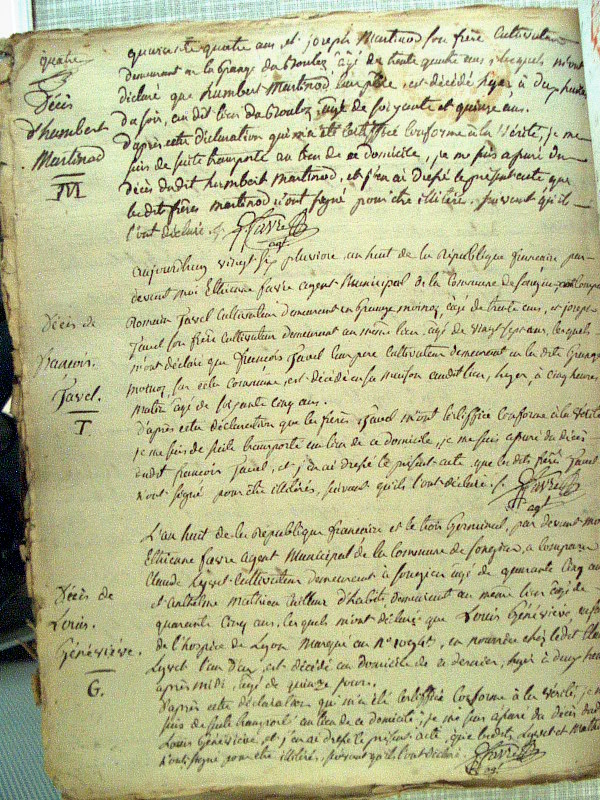 quatre
Décès
d'humbert
Martinod
M
quarante quatre ans, et joseph Martinod son frère Cultivateur
demeurant à la Grange du Bouloz, âgé de trente quatre ans, lesquels m'ont
déclaré que humbert Martinod leur père, est décédé hyer à deux heures
du soir, au dit lieu du Bouloz, âgé de soixante et quinze ans.
d'après cette déclaration qui m'a été Certiffiée Conforme à la Vérité, je me
suis de suite transporté au lieu de ce domicile, je me suis assuré du
décès dudit humbert Martinod, et j'en ai dressé le présent acte que
les dits frères Martinod n'ont signé pour être illitérés, suivant qu'ils
l'ont déclaré.
Favre
agt
Décès de
françois
Favel.
T.
aujourdhuy vingt six pluviose, an huit de la République française par-
devant moi Ethienne favre agent Municipal de la Commune de Songieu
Romain Favel Cultivateur demeurant en Grange moinoz, âgé de trente ans, et joseph
Favel son frère Cultivateur demeurant au même lieu, âgé de vingt sept ans, lesquels
m'ont déclaré que François Favel leur père Cultivateur demeurant en la dite Grange
moinoz, sur cette Commune, est décédé en sa maison audit lieu, hyer, à cinq heures
matin âgé de soixante cinq ans.
d'après cette déclaration que les frères Favel m'ont Certiffiée Conforme à la Vérité
je me suis de suite transporté au lieu de ce domicile, je me suis assuré du décès
dudit françois Favel, et j'en ai dressé le présent acte, que les dits frères Favel
n'ont signé pour être illitérés, suivant qu'ils l'ont déclaré.
Favre
agt
Décès de
Louis
Généviève.
G.
L'an huit de la République francaise et le trois Germinal, par devant moi
Ethienne favre Agent Municipal de la Commune de Songieu, a Comparu
Claude Lyvet Cultivateur demeurant à Songieu âgé de quarante Cinq ans
et anthelme Mathieu tailleur d'habits, demeurant au même lieu âgé de
quarante Cinq ans, les quels m'ont déclaré que Louis Généviève, enfant
de l'hospice de Lyon Marqué au N°, en nourrice chez ledit Claude
Lyvet l'un d'eux, est décédé au domicile de ce dernier, hyer à deux heures
après midi, âgé de quinze jours.
d'après cette déclaration qui m'a été Certiffiée Conforme à la Vérité, je me
suis de suite transporté au lieu de ce domicile, je me suis assuré du décès dudit
Louis Généviève et j'en ai dressé le présent acte, que lesdits Lyvet et Mathieu
n'ont signé pour être illitérés, suivant qu'ils l'ont déclaré.
Favre
agt